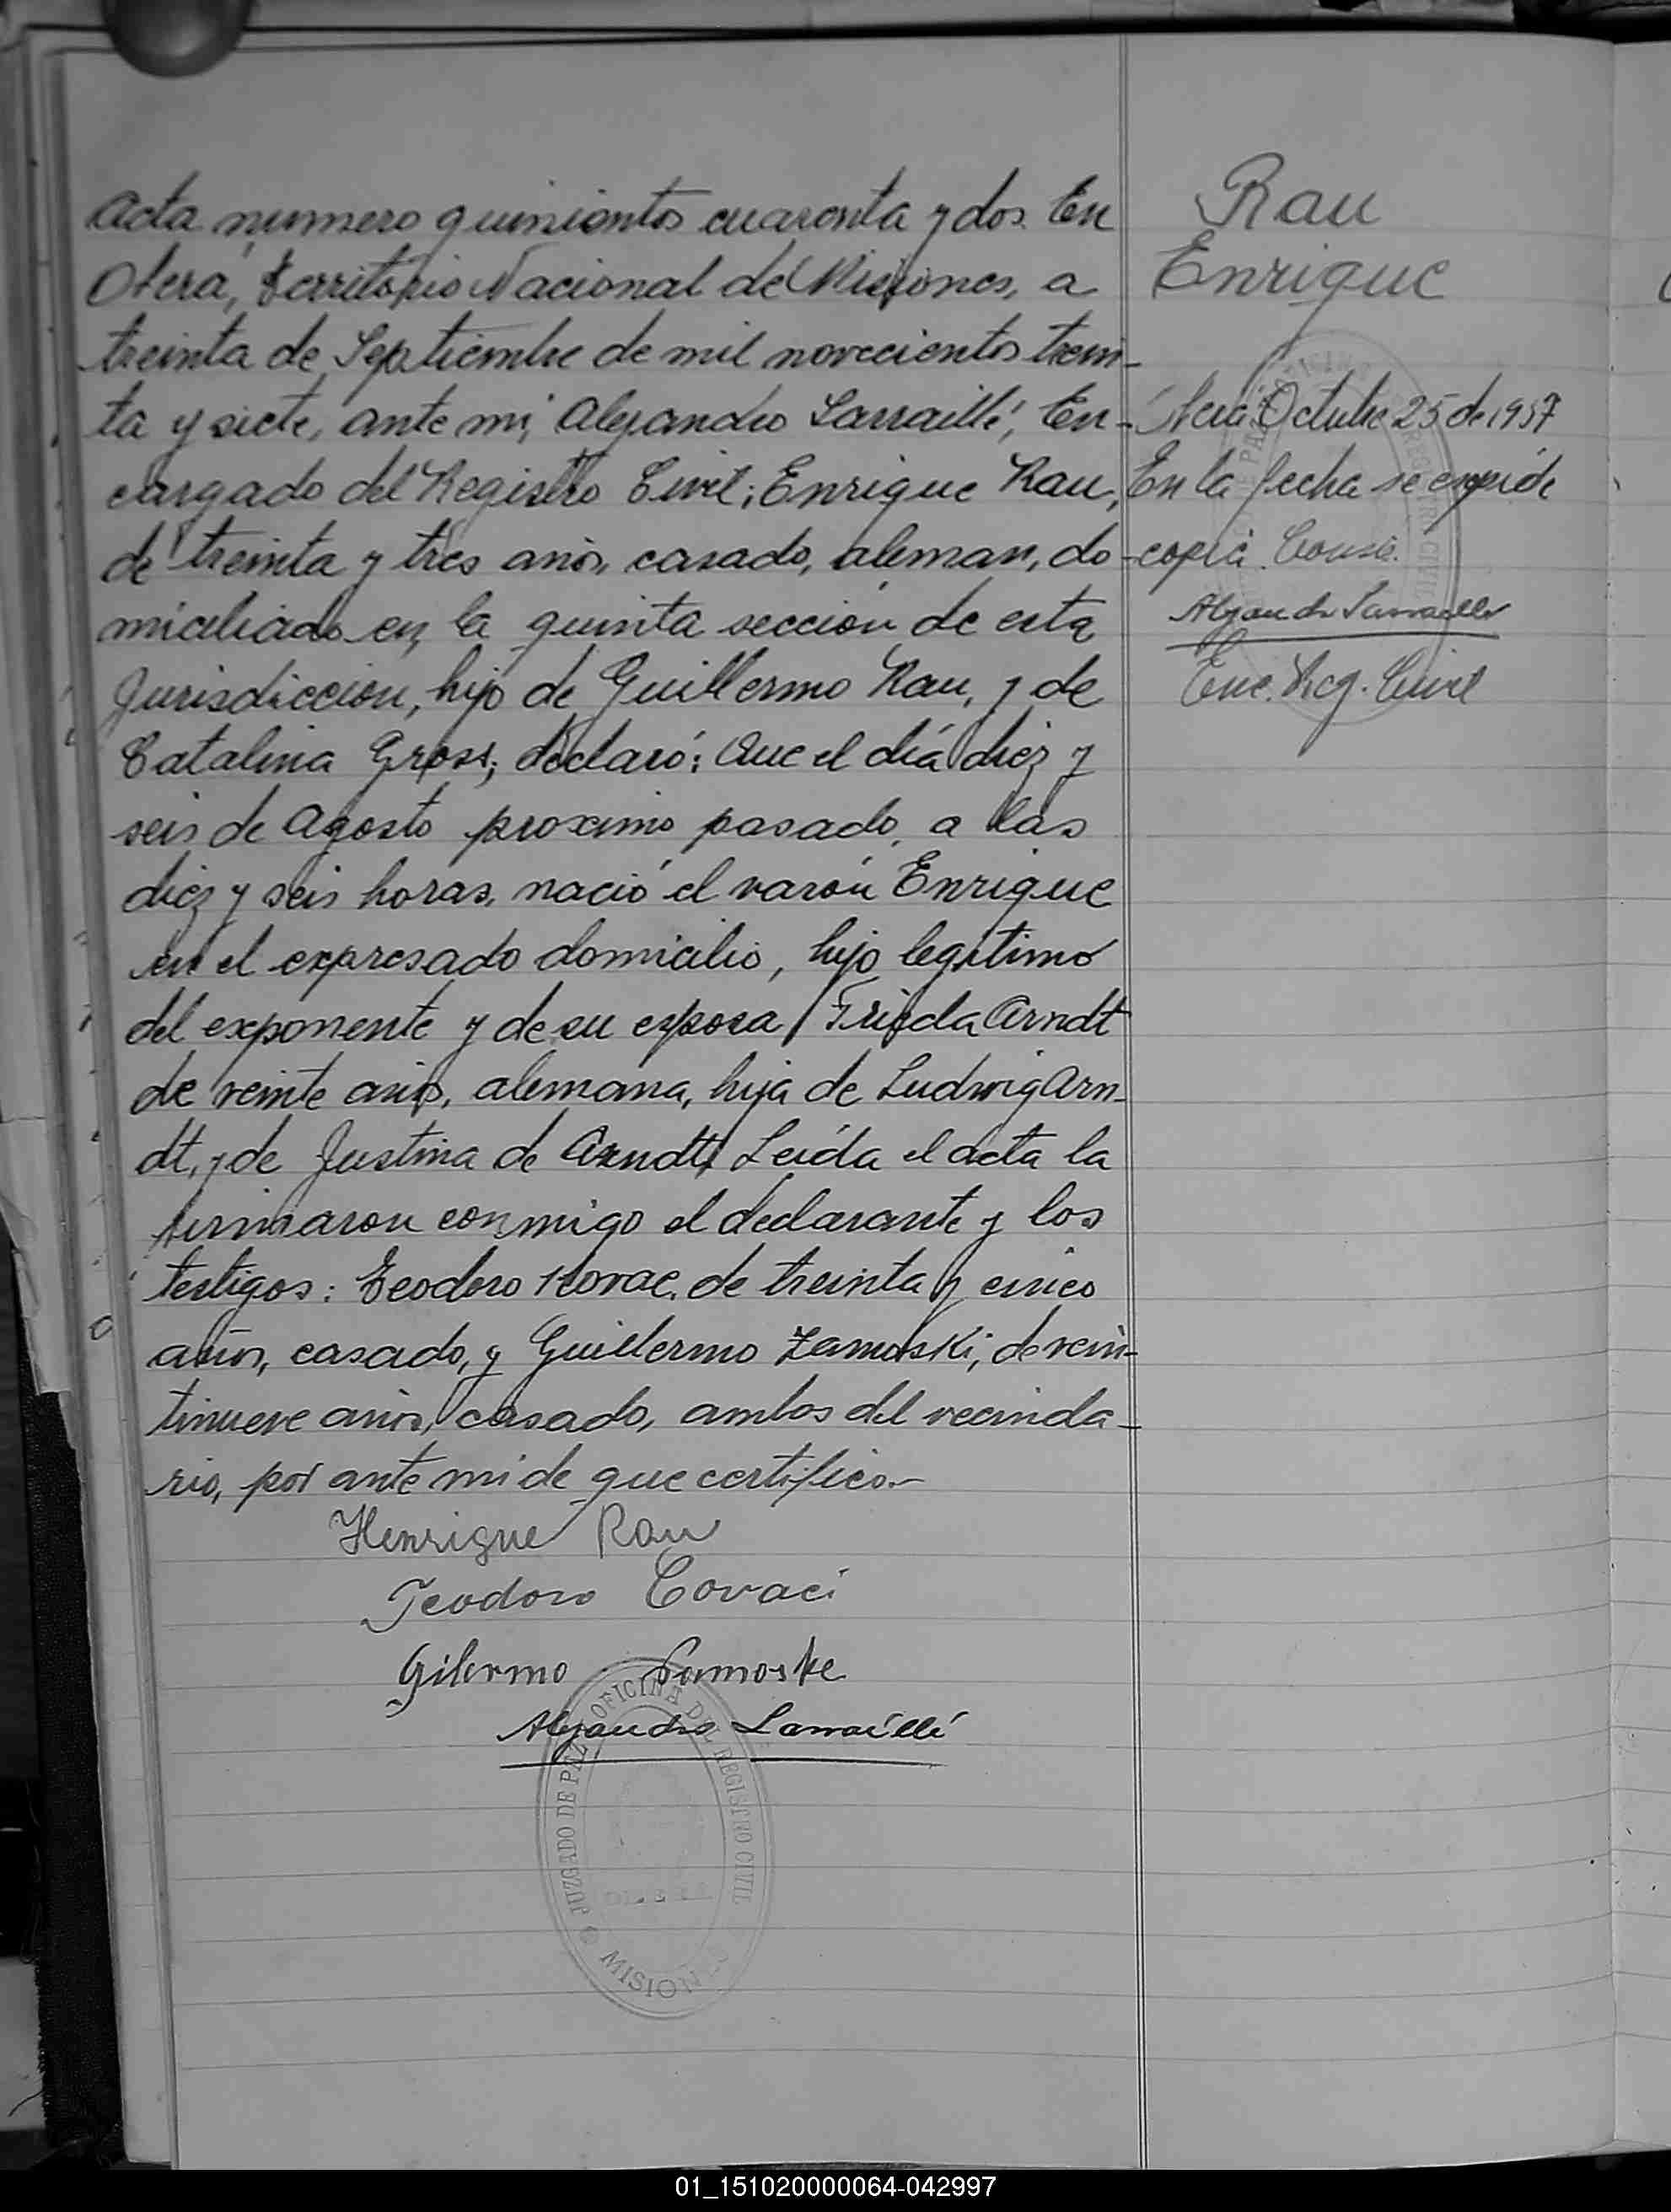 Acta numero quinientos cuarenta y dos. En
Oberá, Territorio Nacional de Misiones, a
treinta de Septiembre de mil novecientos trein-
ta y siete, ante mi, Alejandro Larraillé, En-
cargado del Registro Civil; Enrique Rau,
de treinta y tres años, casado, aleman, do-
miciliado en la quinta sección de esta
Jurisdiccion, hijo de Guillermo Rau, y de
Catalina Gross; declaró: Que el día diez y
seis de Agosto proximo pasado, a las
diez y seis horas, nació el varón Enrique
en el expresado domicilio, hijo legitimo
del exponente y de su esposa Frieda Arndt
de veinte años, alemana, hija de Ludwig Arn-
dt, y de Justina de Arndt. Leída el acta la
firmaron conmigo el declarante y los
testigos: Teodoro Kovac, de treinta y cinco
años, casado, y Guillermo Zamoski, de vein-
tinueve años, casado, ambos del vecinda-
rio, por ante mi de que certifico.-
Henrique Rau
Teodoro Covaci
Gilermo Samoske
Alejandro Larraillé
JUZGADO DE PAZ OFICINA DEL REGISTRO CIVIL
OBERA
MISIONES
Rau
Enrique
Oberá Octubre 25 de 1937
En la fecha se expide
copia. Conste.
Alejandro Larraillé
Enc. Reg. Civil
01_151020000064-042997